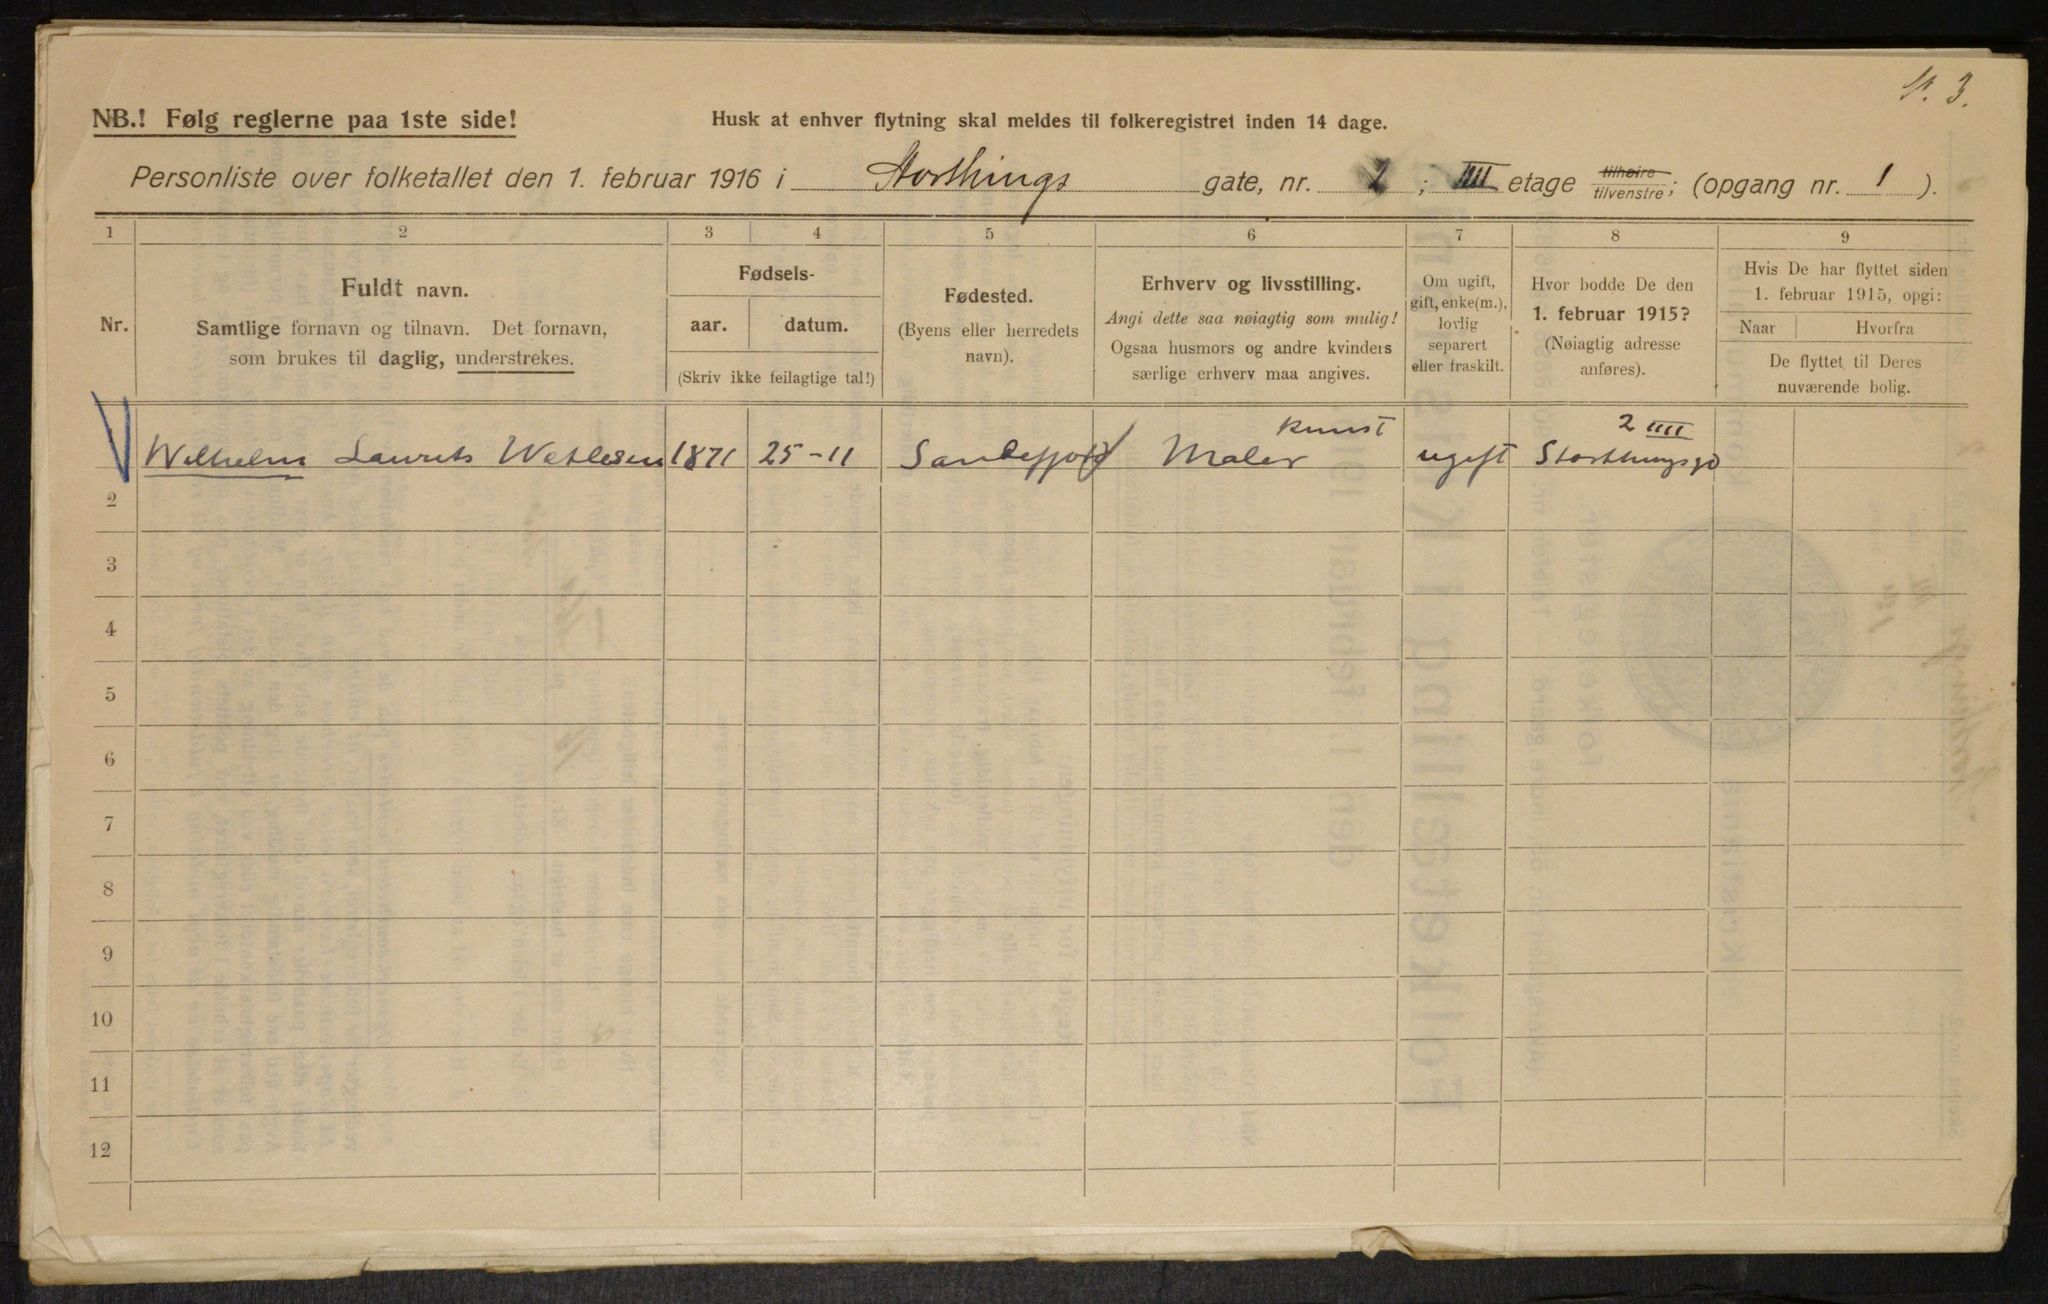 St. 3.
NB.! Følg reglerne paa 1ste side!
Husk at enhver flytning skal meldes til folkeregistret inden 14 dage.
Personliste over folketallet den 1. februar 1916 i Storthings gate, nr. 2 ; IIII etage tilhøire/tilvenstre; (opgang nr. 1 ).
1 2 3 4 5 6 7 8 9
Nr.
Fuldt navn.
Samtlige fornavn og tilnavn. Det fornavn,
som brukes til daglig, understrekes.
Fødsels-
aar. datum.
(Skriv ikke feilagtige tal!)
Fødested.
(Byens eller herredets
navn).
Erhverv og livsstilling.
Angi dette saa nøiagtig som mulig!
Ogsaa husmors og andre kvinders
særlige erhverv maa angives.
Om ugift,
gift, enke(m.),
lovlig
separert
eller fraskilt.
Hvor bodde De den
1. februar 1915?
(Nøiagtig adresse
anføres).
Hvis De har flyttet siden
1. februar 1915, opgi:
Naar Hvorfra
De flyttet til Deres
nuværende bolig.
kunst 2 IIII
Wilhelm Laurits Wetlesen 1871 25-11 Sandefjord Maler ugift Storthingsgd
2
3
4
5
6
7
8
9
10
11
12